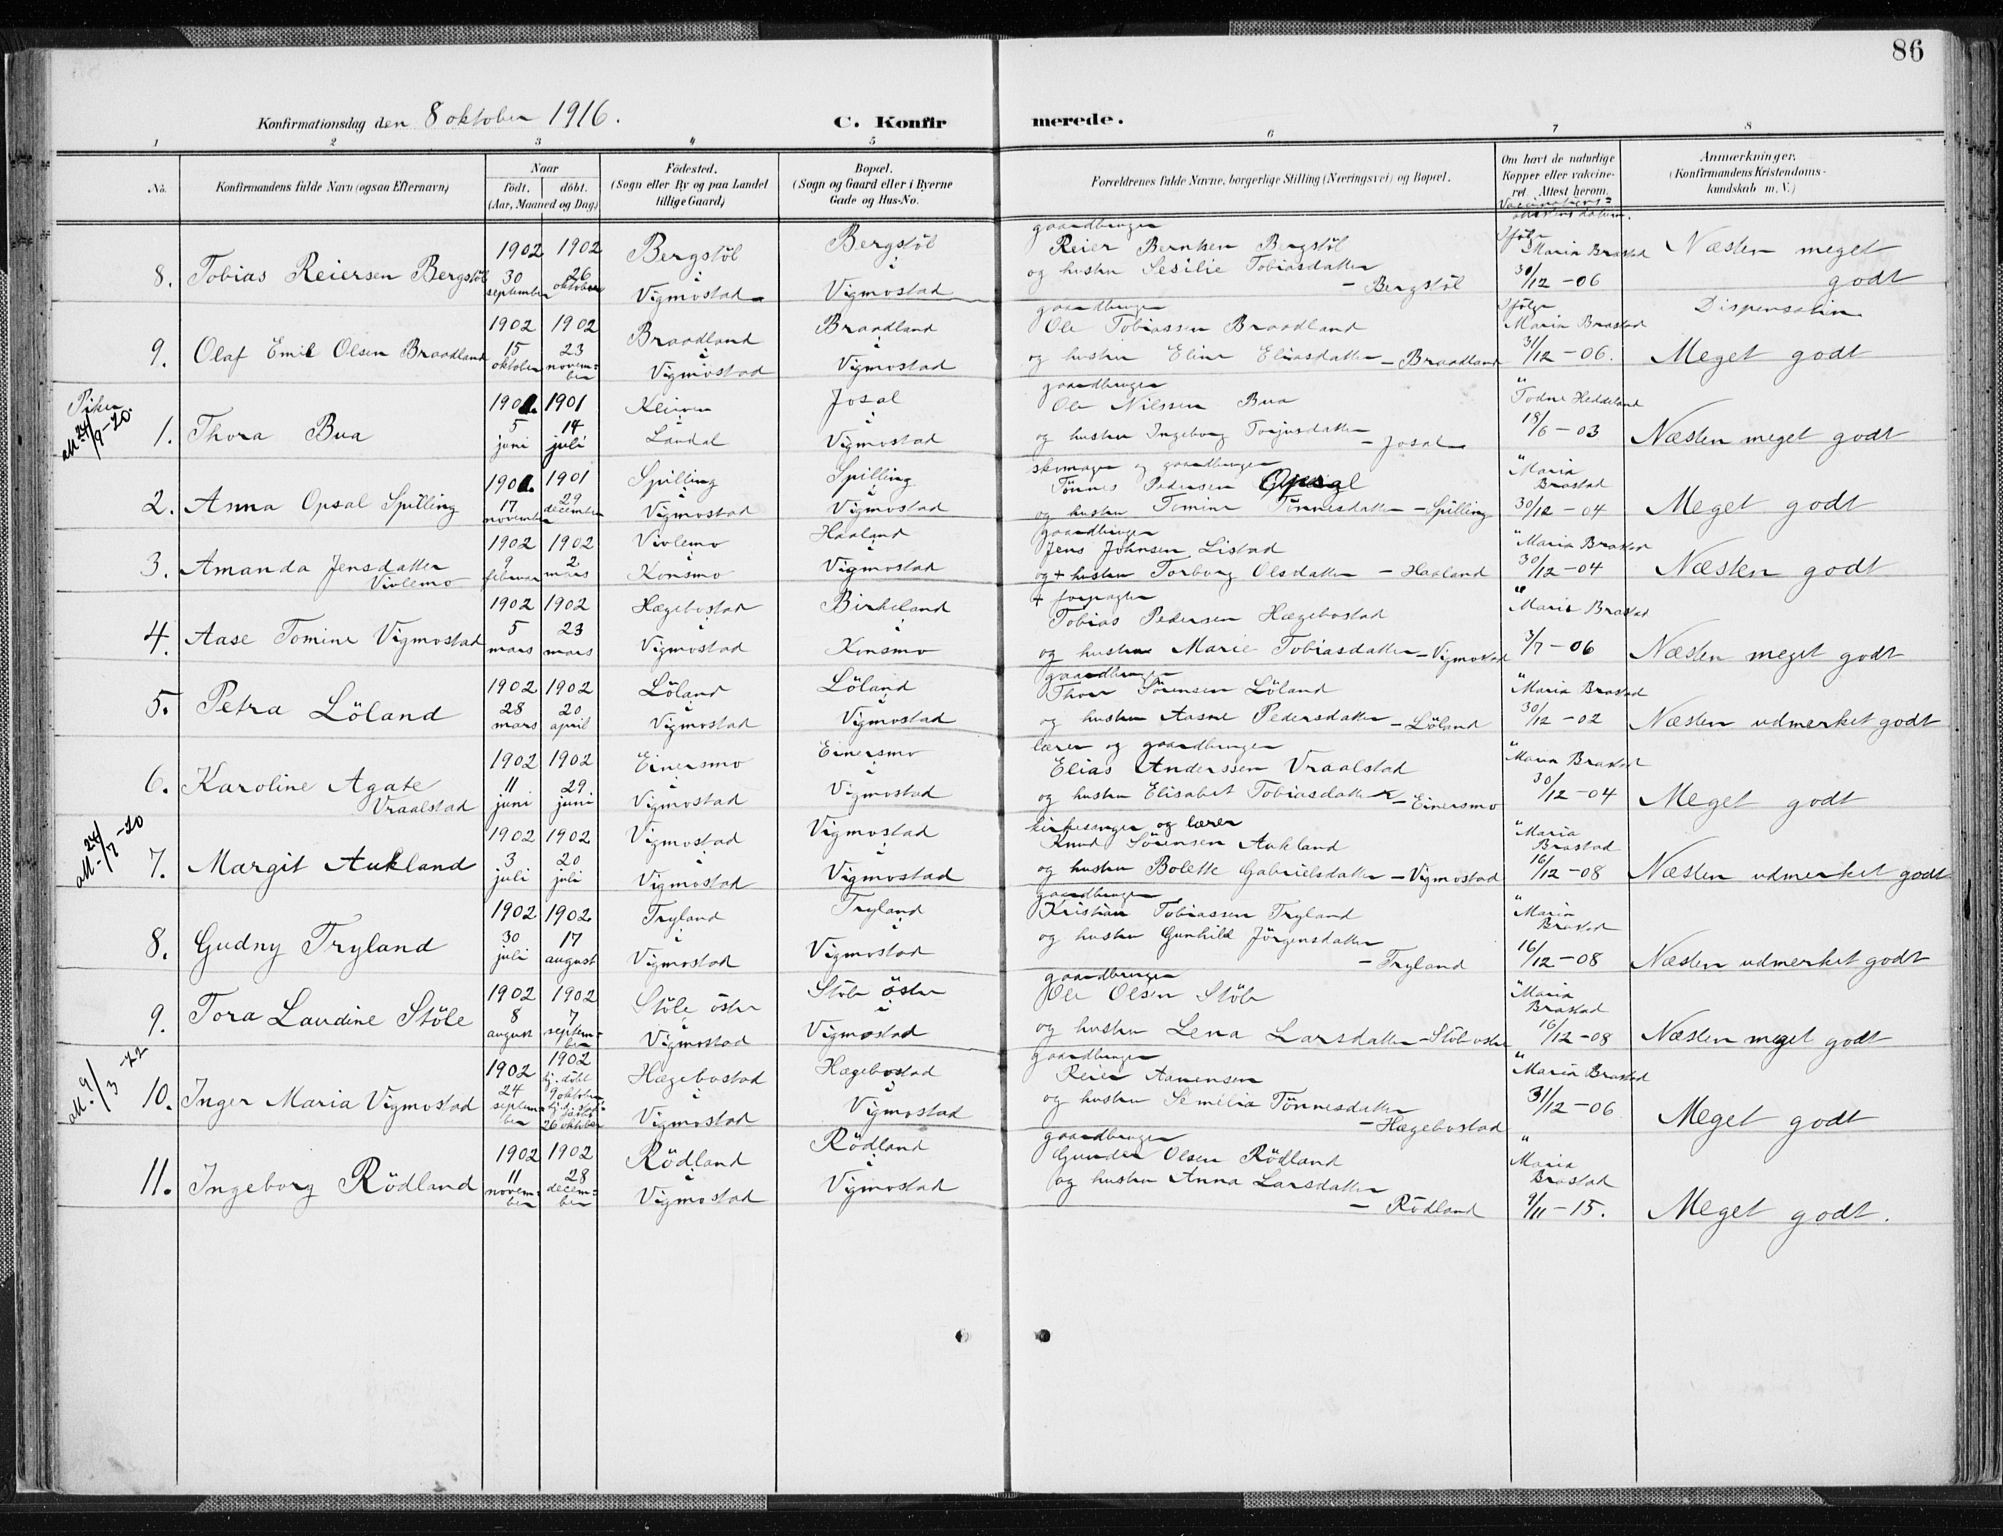 86
Konfirmationsdag den 8 oktober 1916. C. Konfirmerede.
1 2 3 4 5 6 7 8
No. Konfirmandens fulde Navn (ogsaa Efternavn) Naar født, døbt. (Aar, Maaned og Dag) Fødested. (Sogn eller By og paa Landet tillige Gaard) Bopæl. (Sogn og Gaard eller i Byerne Gade og Hus-No. Forældrenes fulde Navne, borgerlige Stilling (Næringsvei) og Bopæl. Om havt de naturlige Kopper eller vakcineret. Attest herom. Anmærkninger. (Konfirmandens Kristendomskundskab m. V.)
8. Tobias Reiersen Bergstöl 1902 30 september 1902 26 oktober Bergstöl i Vigmostad Bergstöl i Vigmostad
gaardbruger Reier Berntsen Bergstöl
og hustru Sesilie Tobiasdatter - Bergstöl
Ifölge Maria Brastad 30/12-06 Næsten meget godt
9. Olaf Emil Olsen Braadland 1902 15 oktober 1902 23 november Braadland i Vigmostad Braadland i Vigmostad
gaardbruger Ole Tobiassen Braadland
og hustru Eline Eliasdatter - Braadland
Ifölge Maria Brastad 31/12-06. Dispensation Meget godt
Piker
att 24/9-20
1. Thora Bua 1901. 5 juni 1901 14 juli Kleiven i Laudal Josal i Vigmostad
gaardbruger Ole Nilssen Bua
og hustru Ingeborg Torjusdatter - Josal
" Todne Heddeland 18/6-03 Næsten meget godt
2. Anna Opsal Spilling 1901. 17 november 1901 29 december Spilling i Vigmostad Spilling i Vigmostad
skomager og gaardbruger Tönnes Pedersen Opsal
og hustru Tomine Tönnesdatter - Spilling
" Maria Brastad 30/12-04 Meget godt
3. Amanda Jensdatter Vivlemo 1902 9 februar 1902 2 mars Vivlemo i Konsmo Haaland i Vigmostad
gaardbruger Jens Johnsen Listad
og + hustru Torborg Olsdatter - Haaland
" Maria Brastad 30/12-04 Næsten godt
4. Aase Tomine Vigmostad 1902 5 mars 1902 23 mars Hægebostad i Vigmostad Birkeland i Konsmo
+ forpagter Tobias Pedersen Hægebostad
og hustru Marie Tobiasdatter - Vigmostad
" Maria Brastad 3/7-06 Næsten meget godt
5. Petra Löland 1902 28 mars 1902 20 april Löland i Vigmostad Löland i Vigmostad
gaardbruger Thore Sörensen Löland
og hustru Aasne Pedersdatter - Löland
" Maria Brastad 30/12-02 Næsten udmerket godt
6. Karoline Agate Vraalstad 1902 11 juni 1902 29 juni Einersmo i Vigmostad Einersmo i Vigmostad
lærer og gaardbruger Elias Anderssen Vraalstad
og hustru Elisabet Tobiasdatter - Einersmo
" Maria Brastad 30/12-04 Meget godt
att. 24/7-20
7. Margit Aukland 1902 3 juli 1902 20 juli Vigmostad i Vigmostad Vigmostad i Vigmostad
kirkesanger og lærer Knud Sörensen Aukland
og hustru Bolette Gabrielsdatter - Vigmostad
" Maria Brastad 16/12-08 Næsten udmerket godt
8. Gudny Tryland 1902 30 juli 1902 17 august Tryland i Vigmostad Tryland i Vigmostad
gaardbruger Kristian Tobiassen Tryland
og hustru Gunhild Jörgensdatter - Tryland
" Maria Brastad 16/12-08 Næsten udmerket godt
9. Tora Laudine Stöle 1902 8 august 1902 7 september Stöle östre i Vigmostad Stöle östre i Vigmostad
gaardbruger Ole Olsen Stöle
og hustru Lena Larsdatter - Stöle östre
" Maria Brastad 16/12-08 Næsten meget godt
att. 9/3-42
10. Inger Maria Vigmostad 1902 24 september 1902 hj. döbt 9 oktober 26 oktober Hægebostad i Vigmostad Hægebostad i Vigmostad
gaardbruger Reier Aanensen
og hustru Semelia Tönnesdatter - Hægebostad
" Maria Brastad 31/12-06 Meget godt
11. Ingeborg Rödland 1902 11 november 1902 28 december Rödland i Vigmostad Rödland i Vigmostad
gaardbruger Gunder Olsen Rödland
og hustru Anna Larsdatter - Rödland
" Maria Brastad 9/11-15. Meget godt.